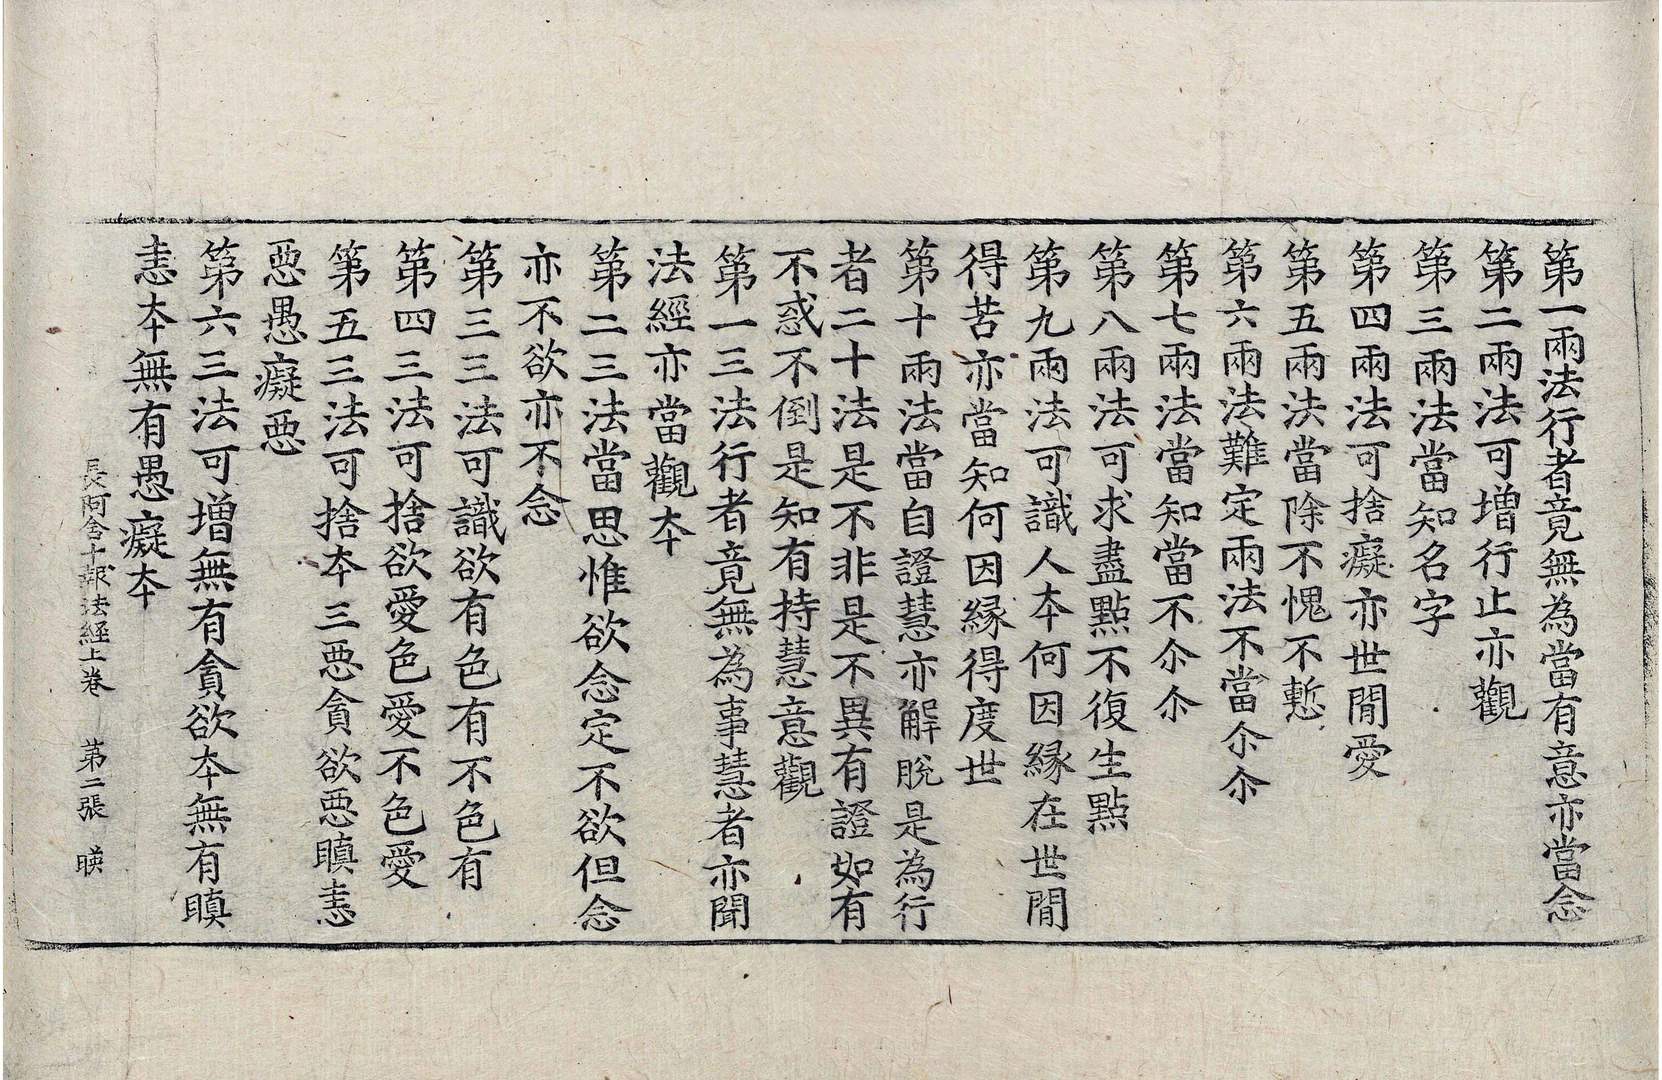 第一兩法行者竟無為當有意亦當念
第二兩法可増行止亦觀
第三兩法當知名字
第四兩法可捨癡亦世閒愛
第五兩法當除不愧不慙
第六兩法難定兩法不當尒尒
第七兩法當知當不尒尒
第八兩法可求盡點不復生點
第九兩法可識人夲何因緣在世閒
得苦亦當知何因緣得度世
第十兩法當自證慧亦解脫是為行
者二十法是不非是不異有證如有
不惑不倒是知有持慧意觀
第一三法行者竟無為事慧者亦聞
法經亦當觀夲
第二三法當思惟欲念定不欲但念
亦不欲亦不念
第三三法可識欲有色有不色有
第四三法可捨欲愛色愛不色愛
第五三法可捨夲三惡貪欲惡瞋恚
惡愚癡惡
第六三法可増無有貪欲夲無有瞋
恚夲無有愚癡夲
長阿含十報法經上卷 第二張 暎